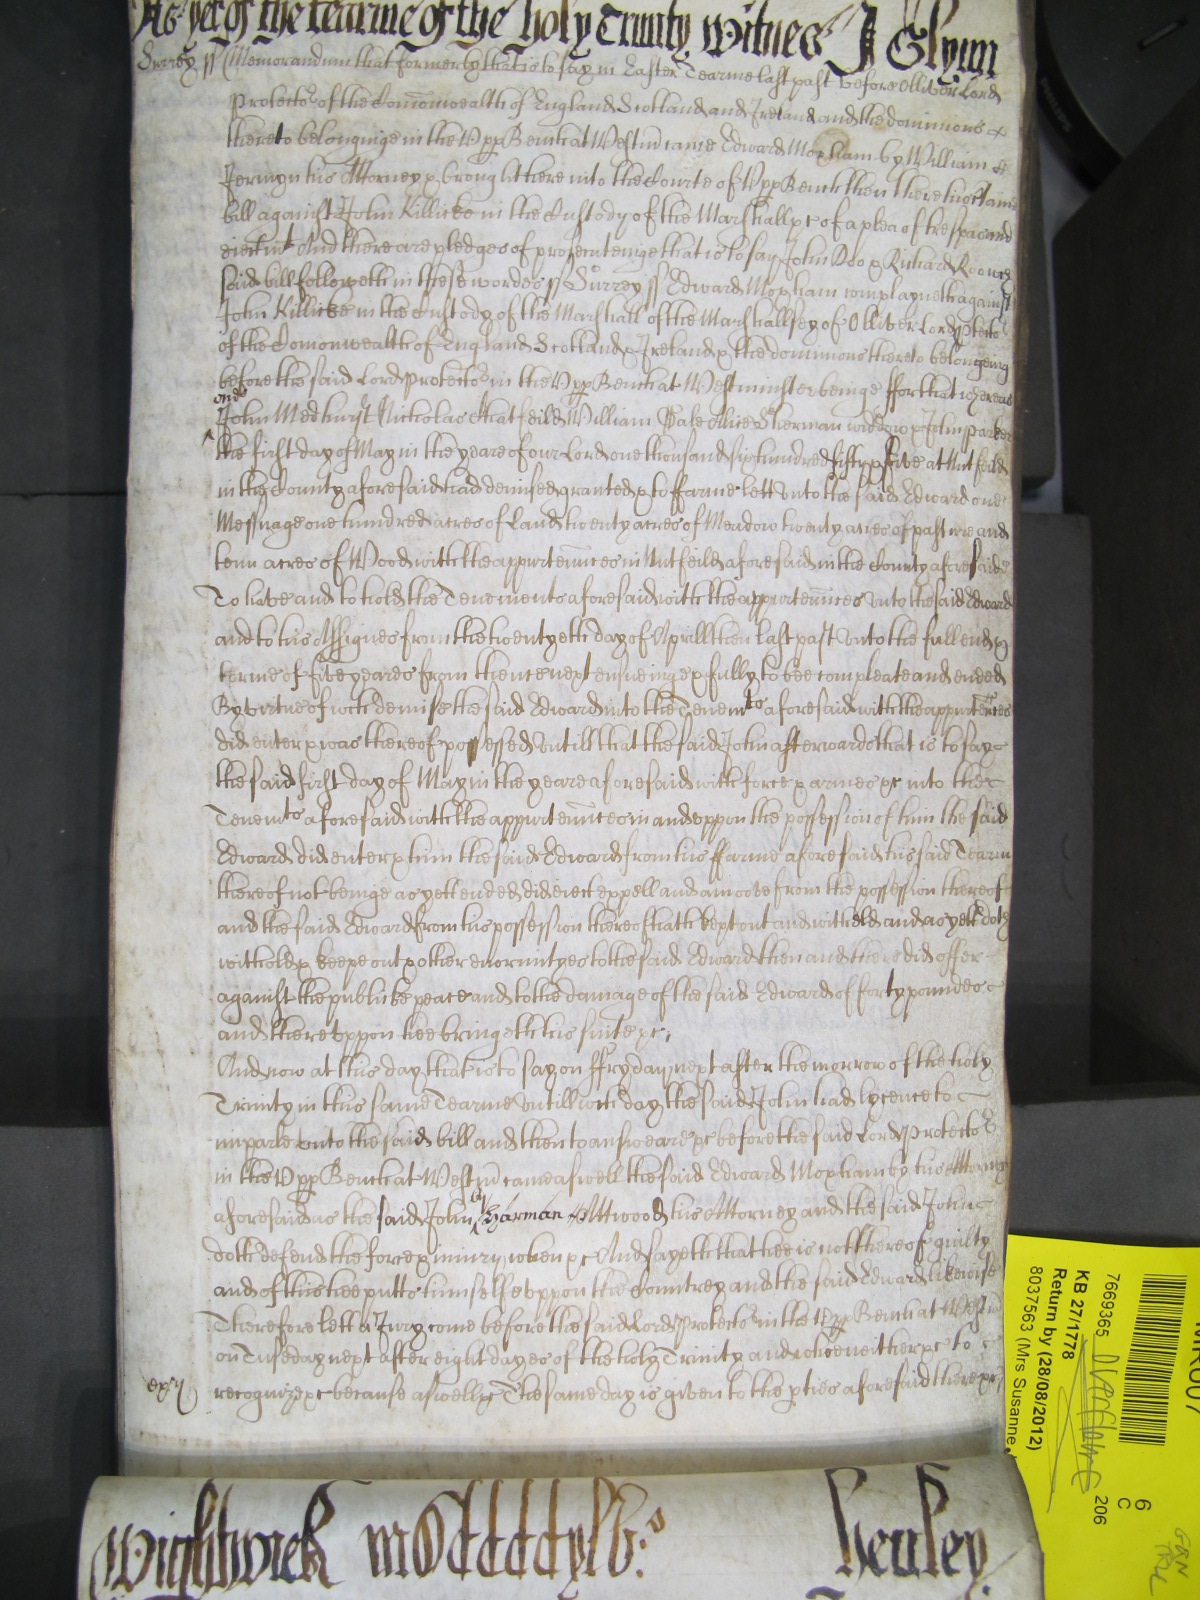 As yet of the tearme of the holy Trinity Witnes J Glynn
Surrey ss Memorandum that formerly that is to say in Easter Tearme last past before Olliver Lord
Protector of the Comonwealth of England Scotland and Ireland and the dominions
thereto belonginge in the Vpp Bench at Westm came Edward Moxham by William
Jermyn his Attorney & brought here into the Courte of Vpp Bench then there his certaine
bill against John Killicke in the Custody of the Marshall &c of a plea of trespas and
eiectmt And there are pledges of prosecuteinge that is to say John Doo & Richard Roo wch
said bill followeth in these wordes ss Surrey ss Edward Moxham complayneth against
John Killicke in the Custody of the Marshall of the Marshallsey of Olliver Lord Protector
of the Comonwealth of England Scotland & Ireland & the dominions thereto belongeing
before the said Lord Protector in the Vpp Bench at Westminster beinge ffor that whereas
John Medhurst Nicholas Hatfeild William Alice Sherman widdow & John Parker
the first day of May in the yeare of our Lord one thousand six hundred fifty & ffive at Nutfeild
in the County aforesaid had demised granted & to ffarme lett vnto the said Edward one
Messuage one hundred acres of Land twenty acres of Meadow twenty acres of pasture and
tenn acres of Wood with the appurtennces in Nutfeild aforesaid in the County aforesaid
To have and to hold the Tenements aforesaid with the appurtennces vnto the said Edward
and to his Assignes from the twentyeth day of Aprill then last past vnto the full end &
terme of five yeares from thence next ensueinge & fully to bee compleate and ended
By virtue of wch demise the said Edward into the Tenemts aforesaid with the appurtennces
did enter & was thereof possessed vntill that the said John afterwards that is to say
the said first day of May in the yeare aforesaid with force & armes &c into the
Tenemts aforesaid with the appurtennces in and vppon the possession of him the said
Edward did enter & him the said Edward from his ffarme aforesaid his said Tearm
thereof not beinge as yett ended did eiect expell and amoove from the possession thereof
and the said Edward from his possession thereof hath kept out and witheld and as yett doth
withold & keepe out & other enormityes to the said Edward then and there did offer
against the publicke peace and to the damage of the said Edward of forty poundes
and therevppon hee bringeth his suite &c
And now at this day that is to say on ffryday next after the morrow of the holy
Trinity in this same Tearme vntill wch day the said John had lycence to
imparle vnto the said bill and then to answeare &c before the said Lord Protector
in the Vpp Bench at Westm came aswell the said Edward Moxham by his Attorney
aforesaid as the said John by Harman Attwood his Attorney and the said John
doth defend the force & iniury when &c And sayeth that hee is not thereof guilty
and of this hee putts himselfe vppon the Countrey and the said Edward likewise
Therefore lett a Jury come before the said Lord Protector in the Vpp Bench at Westm
on Tuseday next after eight dayes of the holy Trinity and who neither &c to
recognize &c because aswell &c The same day is given to the pties aforesaid there &c
Wightwick
Henley
PHILIPS
7669365
KB 27/1778
Return by (28/08/2012)
8037563 (Mrs Susanne
206
6
C